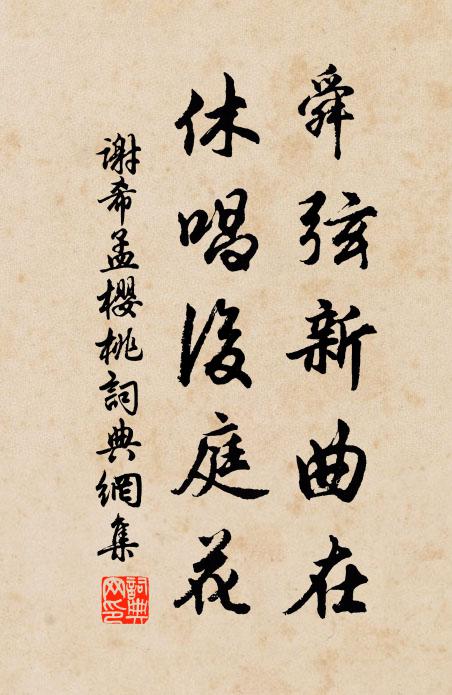 舜弦新曲在
休唱後庭花
謝希孟櫻桃詞典網集